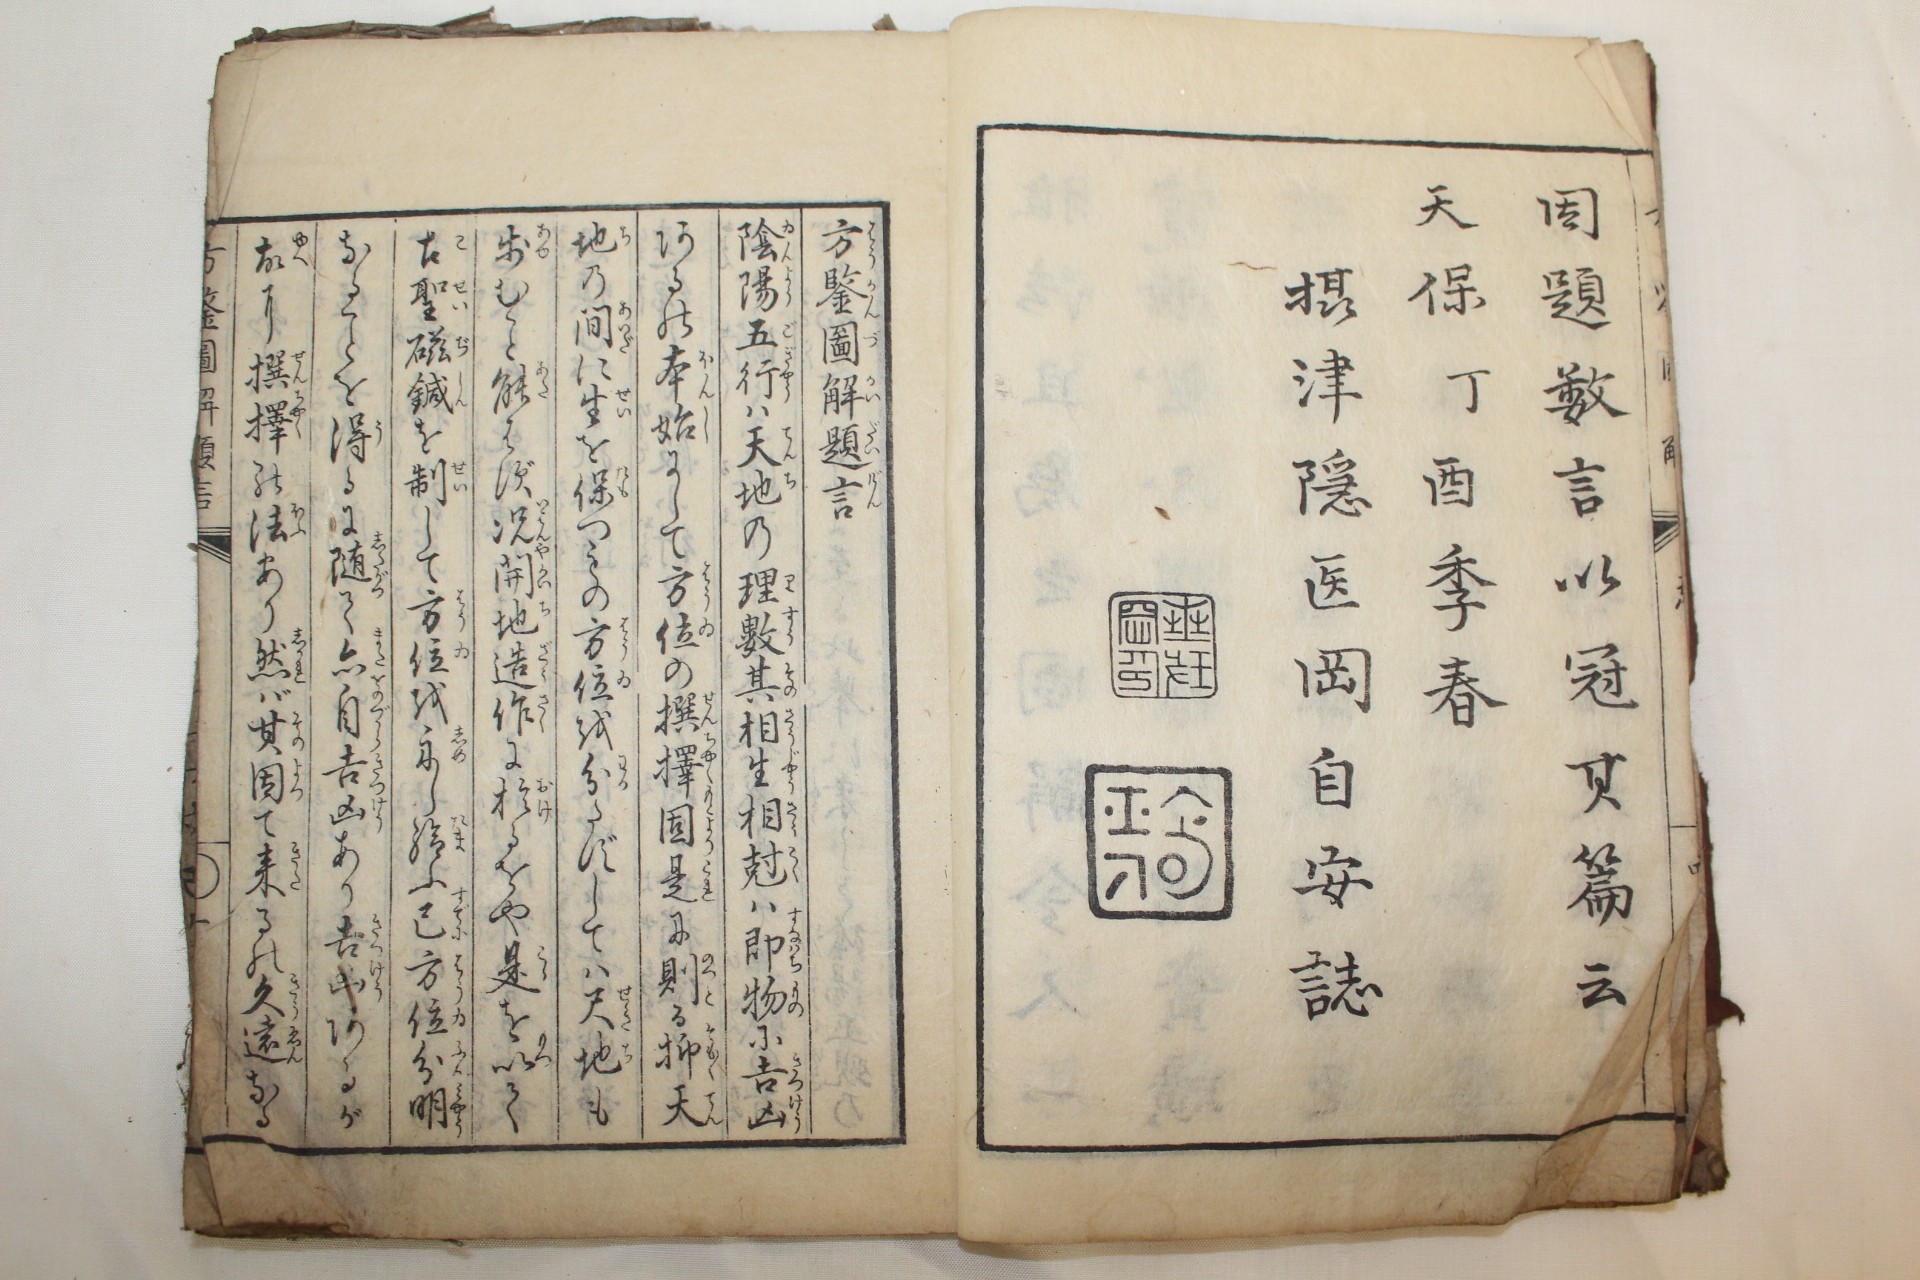 因題數言以冠其篇云
天保丁酉季春
摂津隠医岡自安誌
方鑒圖解題言
陰陽五行ハ天地の理數其相生相尅ハ即物に吉凶
あるの本始にして方位の撰擇固是に則る抑天
地の間に生を保つもの方位を分たずしてハ尺地も
歩むこと能はず況開地造作に於るをや是を以て
古聖磁鍼を制して方位を示し給ふ已方位分明
なることを得るに随て亦自吉凶あり吉凶あるが
故に撰擇の法あり然ば其因て来るの久遠なる
方鑒圖解題言